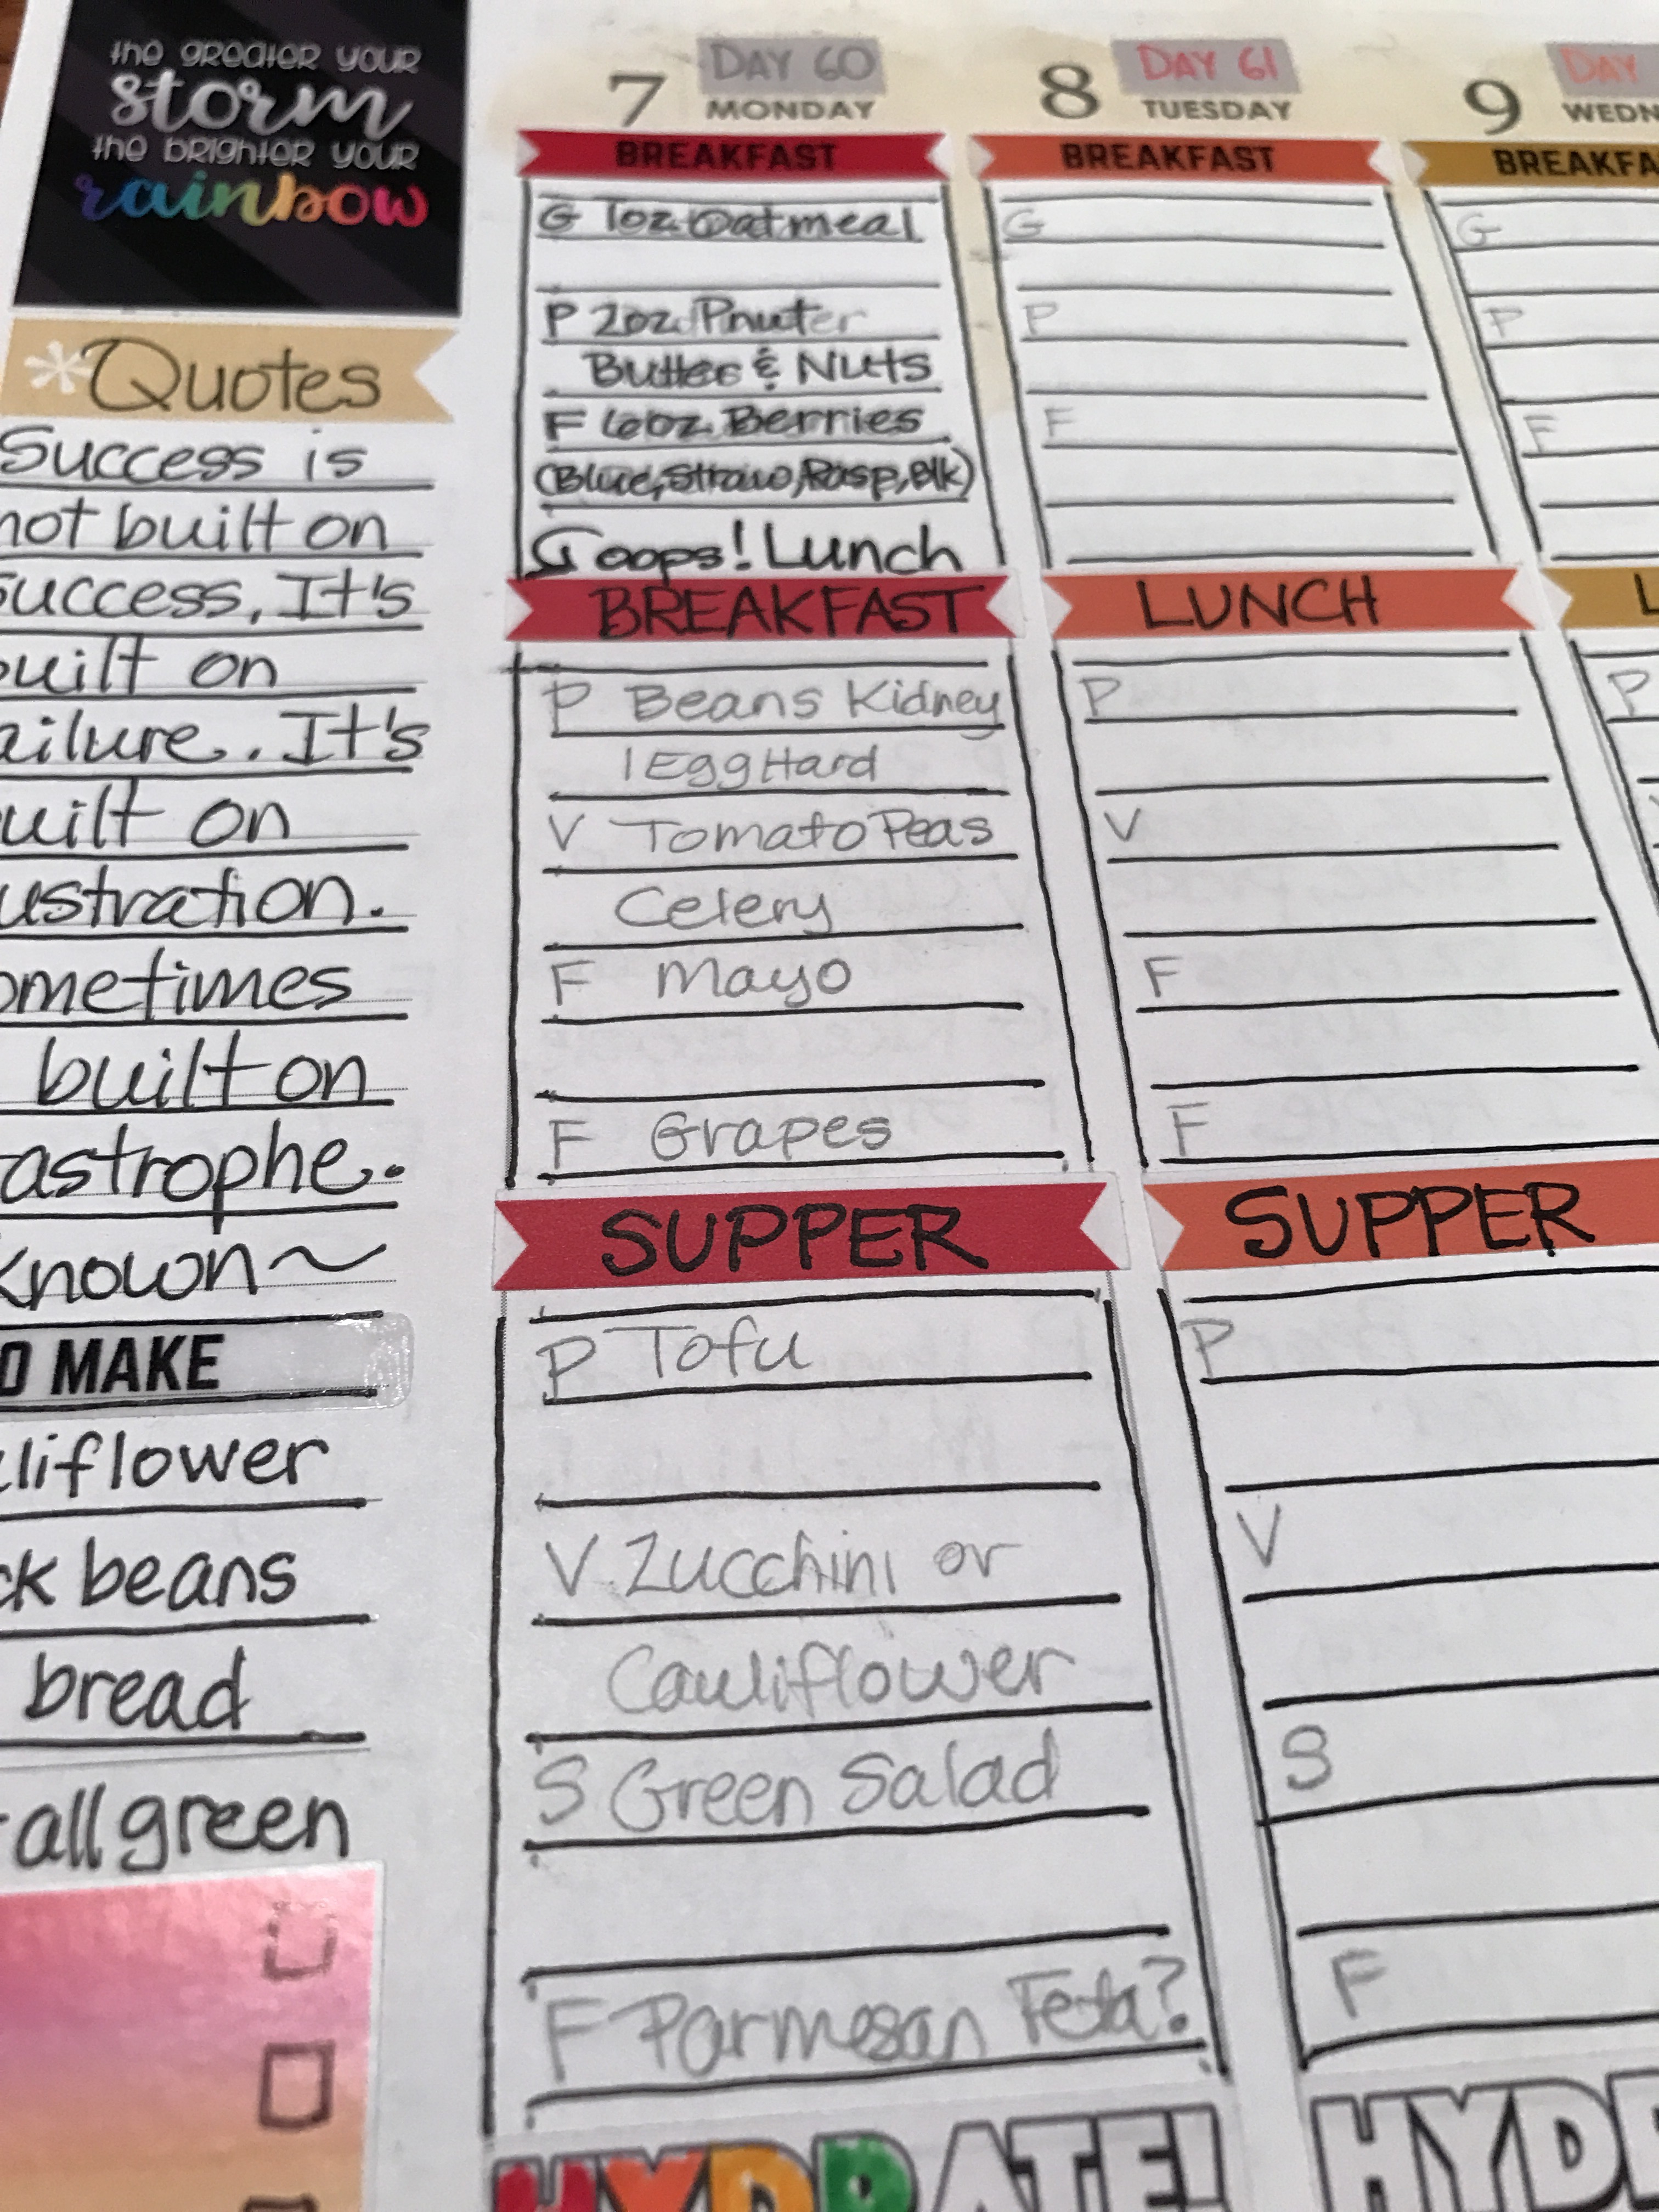 the greater your
storm
the brighter your
rainbow
*Quotes
Success is
not built on
success. It's
built on
failure. It's
built on
ustration.
ometimes
built on
tastrophe.
Known~
O MAKE
liflower
ck beans
bread
all green
7 DAY 60
MONDAY
BREAKFAST
G 1oz. Oatmeal
P 2oz. Pnuter
Butter & Nuts
F 6oz. Berries
(Blue, Straw, Rasp, Blk)
oops! Lunch
BREAKFAST
P Beans Kidney
1 Egg Hard
V Tomato Peas
Celery
F Mayo
F Grapes
SUPPER
P Tofu
V Zucchini or
Cauliflower
S Green Salad
F Parmesan Feta?
HYDRATE!
8 DAY 61
TUESDAY
BREAKFAST
G
P
F
LUNCH
P
V
F
F
SUPPER
P
V
S
F
HYDR
9 DAY
WEDN
BREAKFA
G
P
F
L
P
V